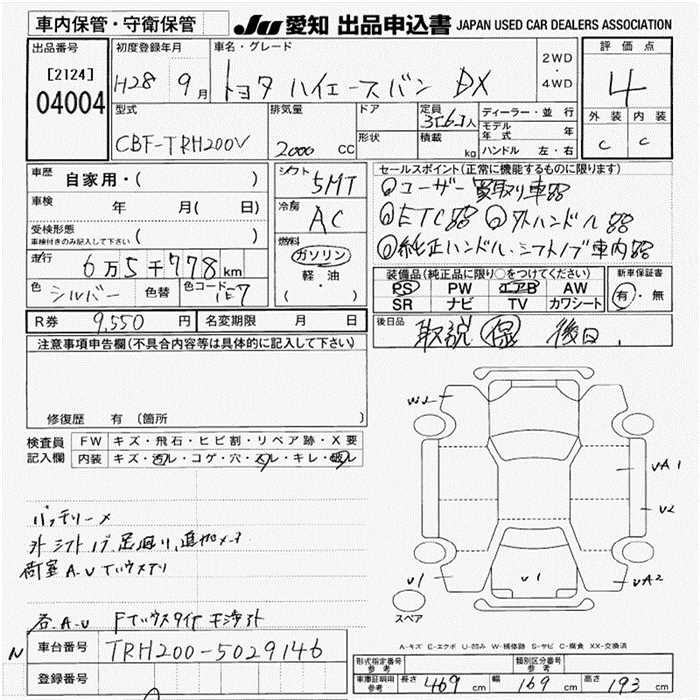 車内保管・守衛保管
JU 愛知 出品申込書 JAPAN USED CAR DEALERS ASSOCIATION
出品番号
[2124]
04004
初度登録年月
H28 9月
車名・グレード
トヨタ ハイエースバン DX
2WD
・
4WD
評価点
4
外装 内装
C C
型式
CBF-TRH200V
排気量
2000 CC
ドア
形状
定員
人
積載
kg
ディーラー・並行
モデル年式 年
ハンドル 左・右
車歴
自家用・( )
車検 年 月( 日)
受検形態
車検付きのみ記入して下さい ( )
走行
6万5千778km
色 シルバー 色替 色コード 1E7
シフト
5MT
冷房
AC
燃料
ガソリン
軽・油
( )
セールスポイント(正常に機能するものに限ります)
ユーザー買取り車
ETC 外ハンドル
純正ハンドル・シフトノブ車内
装備品(純正品に限り○をつけてください)
PS PW エアB AW
SR ナビ TV カワシート
新車保証書
有・無
後日品
取説 保 後日.
R券 9,550円 名変期限 月 日
注意事項申告欄(不具合内容等は具体的に記入して下さい)
修復歴 有 (箇所
検査員記入欄
FW キズ・飛石・ヒビ割・リペア跡・X要
内装 キズ・汚ル・コゲ・穴・スレ・キレ・破ル
W2
UA1
U2
U1
U1
UA2
スペア
バッテリーメ
外シフトノブ,足廻り,
荷室A.U
各A.U
A-キズ E-エクボ U-凹み W-補修跡 S-サビ C-腐食 XX-交換済
N
車台番号 TRH200-5029146
登録番号
形式指定番号
参考
類別区分番号
参考
車庫証明用
参考
長さ 469cm 幅 169cm 高さ 193cm